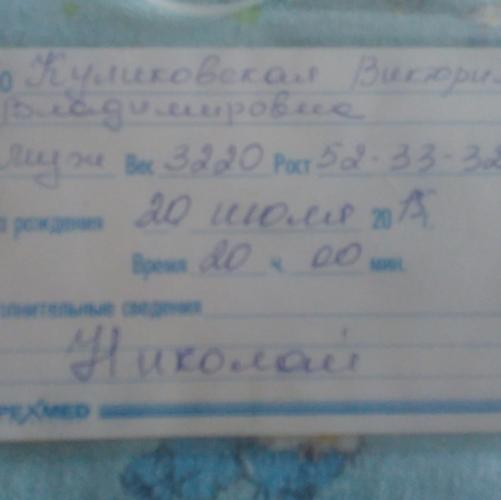 О Куликовская Виктория
Владимировна
муж Вес 3220 Рост 52-33-32
а рождения 20 июля 20 15 г.
Время 20 ч 00 мин.
олнительные сведения
Николай
PEXMED